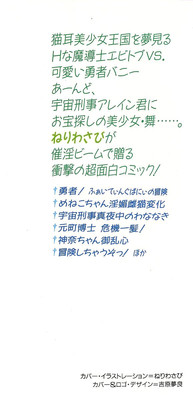 猫耳美少女王国を夢見る
Hな魔導士エビトブVS.
可愛い勇者バニー
あーんど、
宇宙刑事アレイン君に
お宝探しの美少女・舞……。
ねりわさびが
催淫ビームで贈る
衝撃の超面白コミック!
†勇者! ふぁいてぃんぐばにぃの冒険
†めねこちゃん淫媚雌猫変化
†宇宙刑事真夜中のわななき
†元町博士 危機一髪!
†神奈ちゃん御乱心
†冒険しちゃうぞっ! ほか
カバー・イラストレーション=ねりわさび
カバー&ロゴ・デザイン=吉原夢良